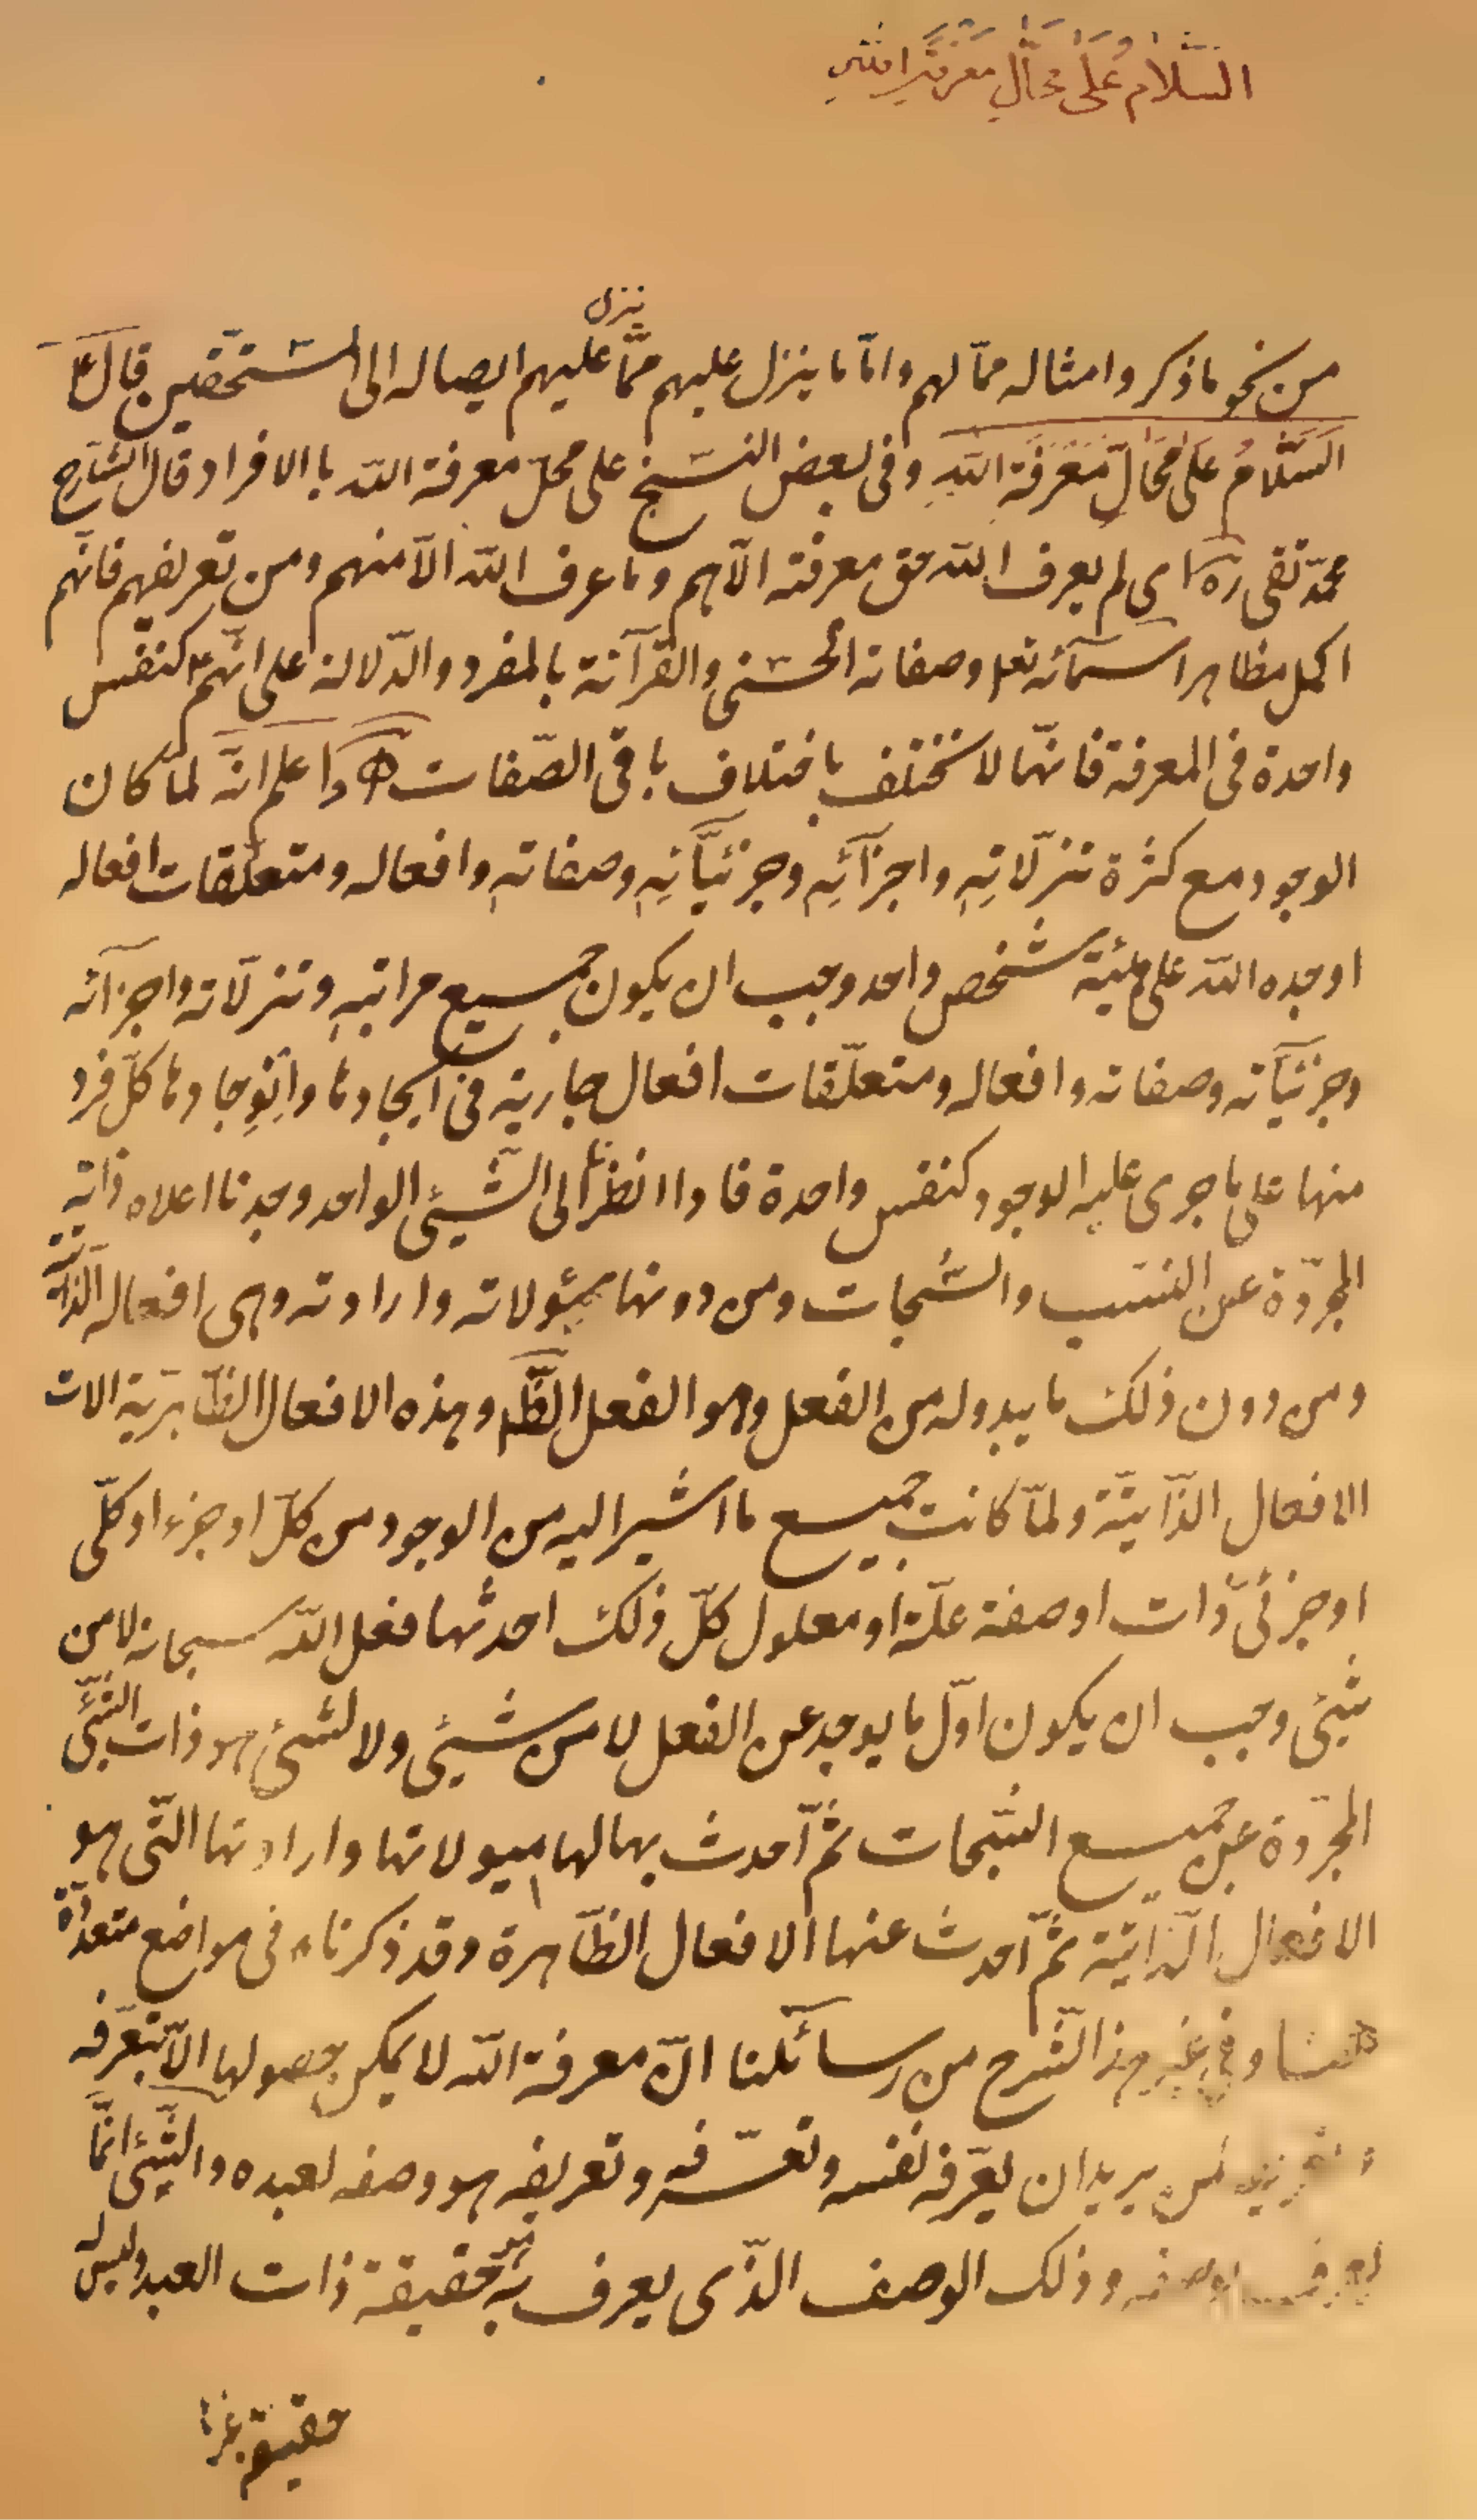 السَّلامُ عَلَى مَحَالِّ مَعْرِفَةِ اللّٰهِ
ينزل
من نحو ما ذكر وامثاله ممّا لهم وامّا ما ينزل عليهم ممّا عليهم ايصاله الى المستحقين قال ع
السَّلامُ عَلَى مَحَالِّ مَعْرِفَةِ اللّٰهِ وفى بعض النسّخ على محلّ معرفة اللّه با الافراد قال الشارح
محمّد تقى ره اى لم يعرف اللّه حق معرفته الّا هم وما عرف اللّه الّا منهم ومن تعريفهم فانّهم
اكمل مظاهر اسمآئه تعالى وصفاته الحسنى والقرآئة بالمفرد والدّلالة على انّهم ع كنفس
واحدة فى المعرفة فانّها لا تختلف باختلاف باقى الصّفات واعلم انّه لمّا كان
الوجود مع كثرة تنزّلاتِهِ واجزآئِهِ وجزئيّاتِهِ وصفاتِه وافعاله ومتعلّقات افعاله
اوجده اللّه على هيئة شخص واحد وجب ان يكون جميع مراتبهِ وتنزّلاته واجزآئه
وجزئيّاته وصفاته وافعاله ومتعلّقات افعال جارية فى ايجادها وانوِجادها كلّ فرد
منها على ما جرى عليه الوجود كنفس واحدة فاذا انظرنا الى الشّيئ الواحد وجدنا اعلاه ذاته
المجرّدة عن النسب والسُّبحات ومن دونها ميولاته وارادته وهى افعاله الذّاتيّة
ومن دون ذلك ما يبدو له من الفعل وهو الفعل الظّاهر وهذه الافعال الظّاهريّة الات
الافعال الذّاتيّة ولمّا كانت جميع ما اشير اليه من الوجود من كلّ او جزء او كلّى
او جزئىّ ذات او صفة علّة او معلول كلّ ذلك احدثها فعل اللّه سبحانه لا من
شيئ وجب ان يكون اوّل ما يوجد عن الفعل لا من شيئ ولا لشيئ هو ذات الشّيئ
المجرّدة عن جميع السّبحات ثمّ احدث بها لها ميولاتها وارادتها الّتى هو
الافعال الذّاتيّة ثمّ احدث عنها الافعال الظّاهرة وقد ذكرناه فى مواضع متعدّدة
هنا وفى غير هذا الشّرح من رسائلنا انّ معرفة اللّه لا يمكن حصولها الّا بتعرّفه
وتعريفه لمن يريد ان يعرّفه نفسه وتعرّفه وتعريفه هو وصفه لعبده والشّيئ انّما
يعرف بوصفه وذلك الوصف الذّى يعرف به حقيقة ذات العبد وليس له
حقيقة غير